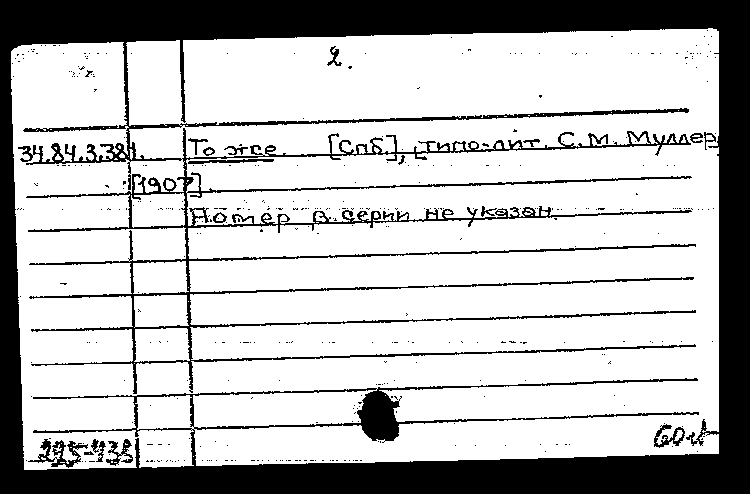 2.
34.84.3.381. То же. [Спб.], [типо-лит. С.М. Муллер
[1907].
Номер в серии не указан.
295-738